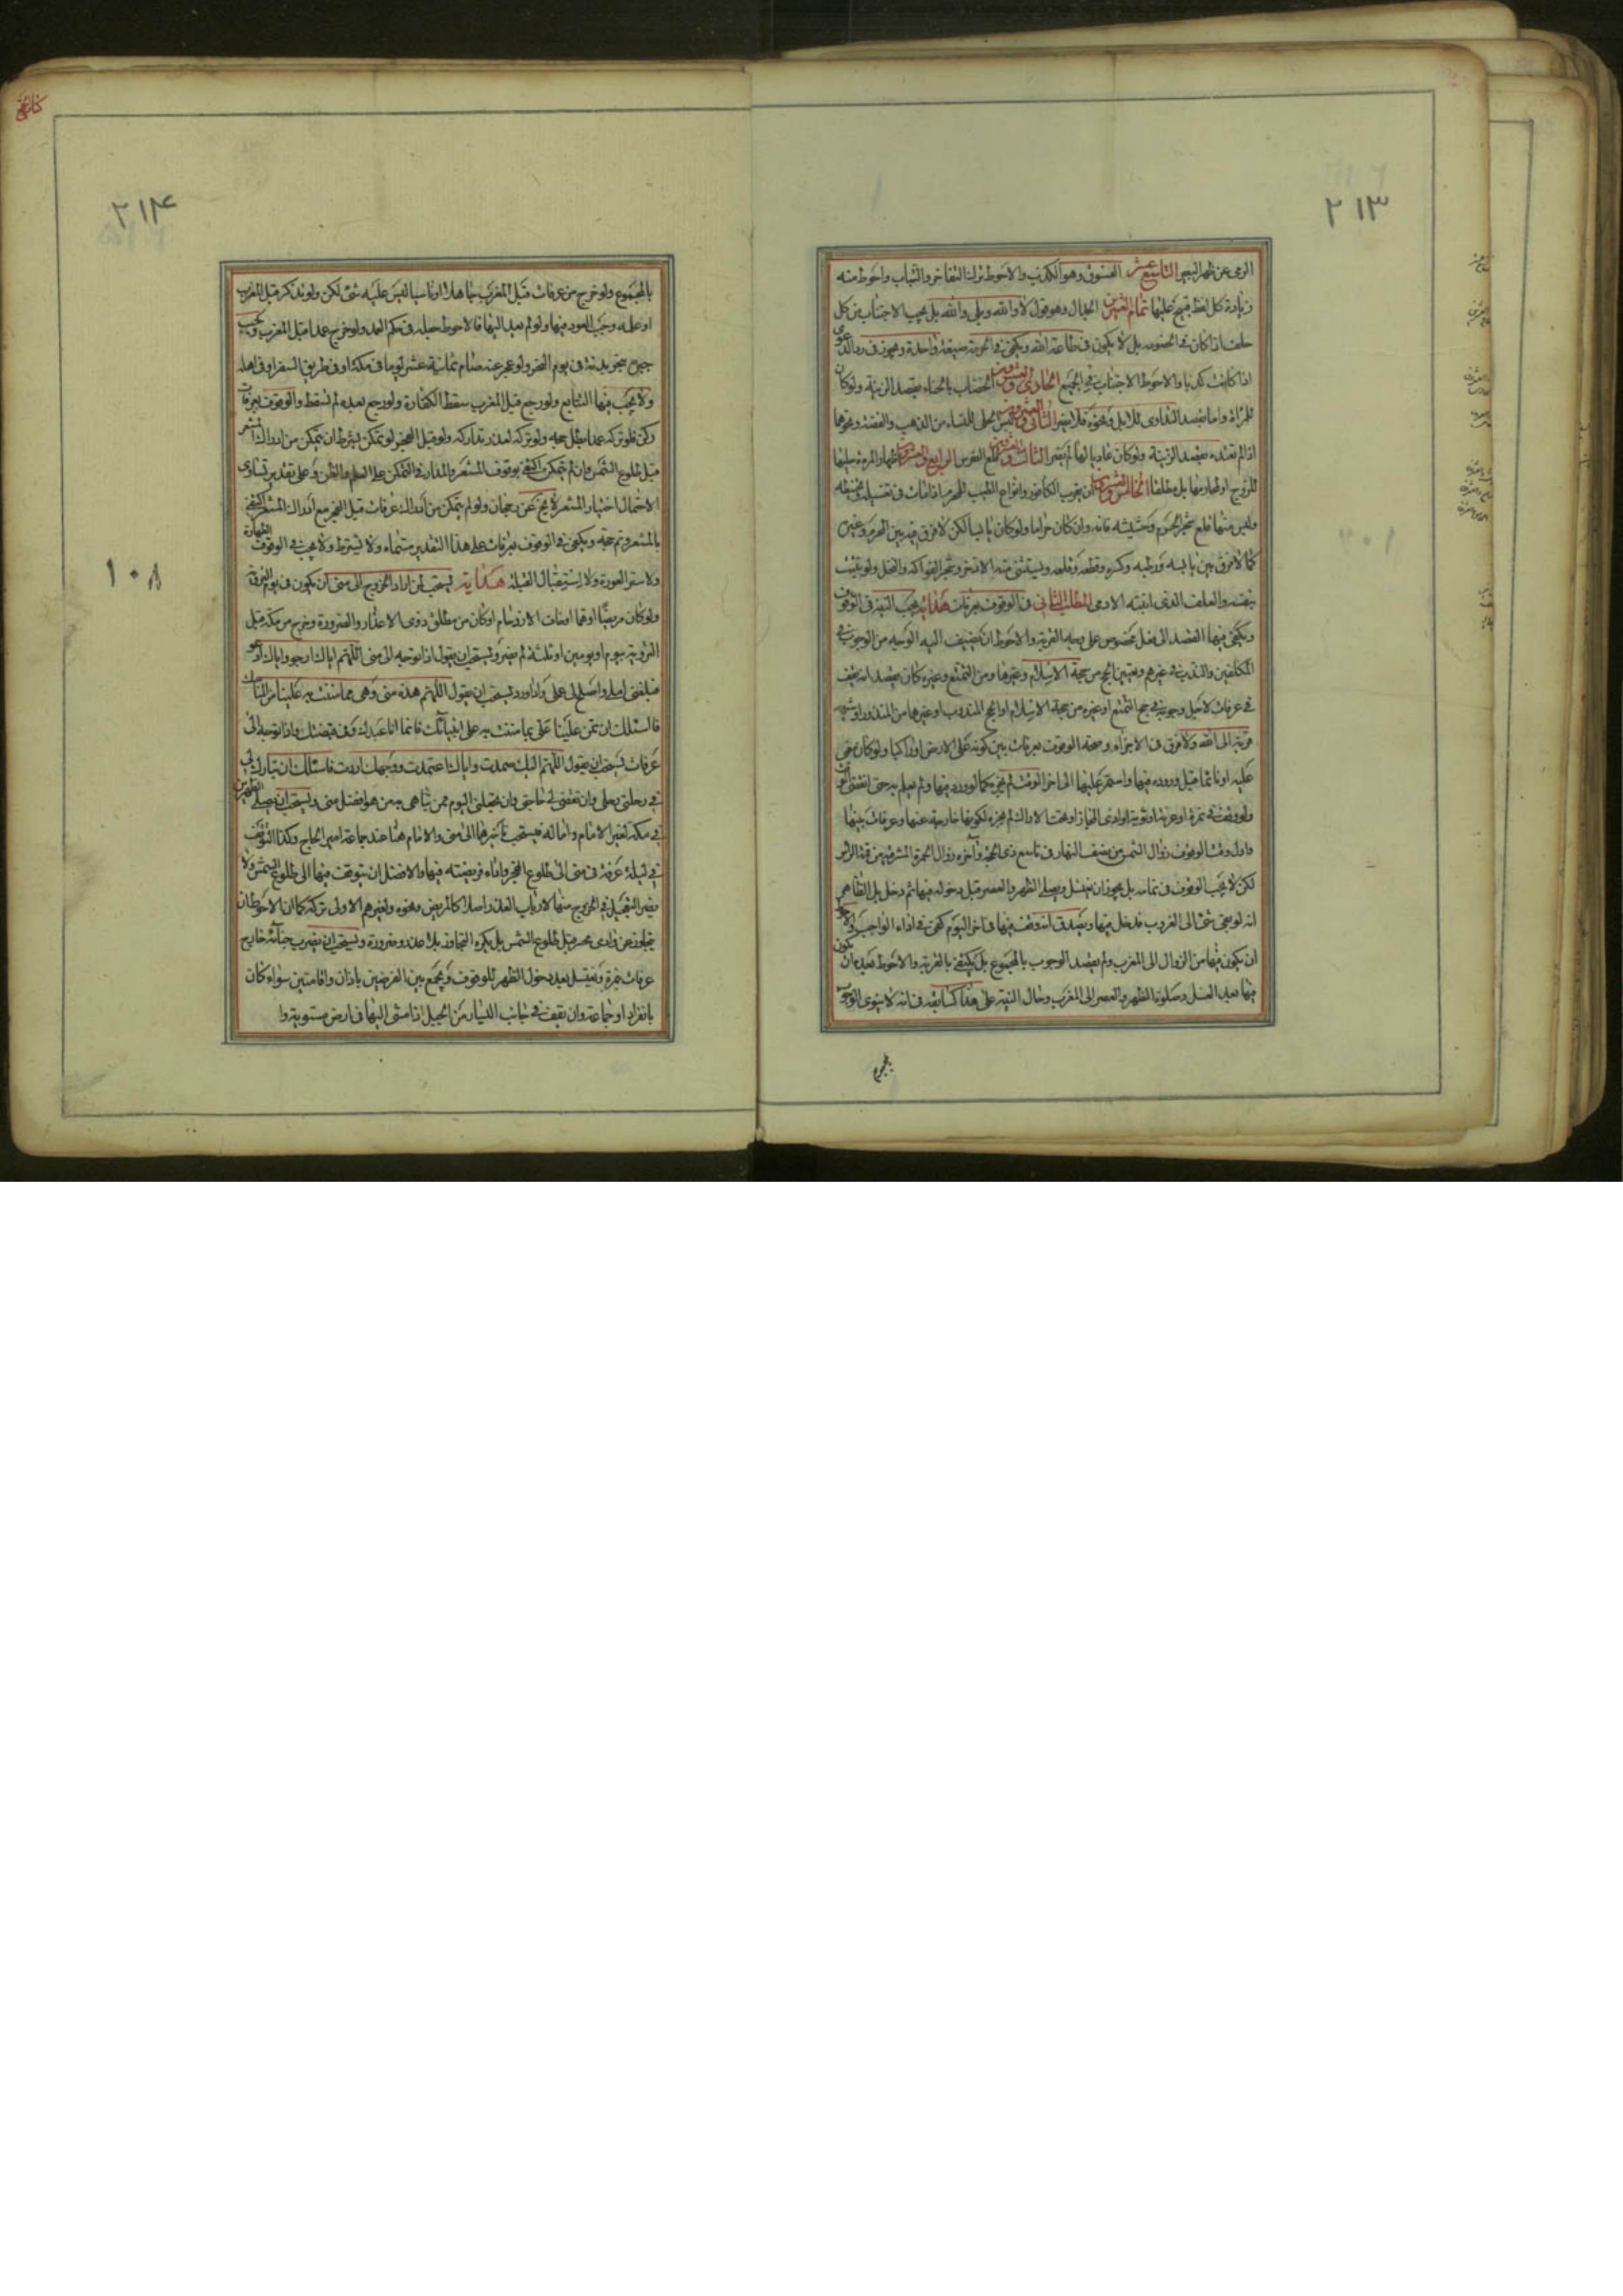 ٢١٣
الرمى عن ظهر البعير التاسع عشر الفسوق وهو الكذب والاحوط ترك التفاخر والسباب واحوط منه
زيادة كل لفظ قبيح عليها تمام العشرين الجدال وهو قول لا والله وبلى والله بل يجب الاجتناب من كل
حلف اذا كان فى الخصومه بل لا يكون فى طاعة الله ويكفى فى الحرمة صيغة واحدة ويجوز فى رد الدعوى
اذا كانت كذبا والاحوط الاجتناب فى الجميع الحادى والعشرون الخضاب بالحناء بقصد الزينة ولو كان
للمرأة واما بقصد التداوى للابل ونحوه فلا يضر الثانى والعشرون لبس حلى للنساء من الذهب والفضة ونحوهما
اذا لم تعتده بقصد الزينة ولو كان عاديا لها لم يضر الثالث والعشرون قلع الضرس الرابع والعشرون
للزوج او اظهارها بل مطلقا الخامس والعشرون ان يقرب الكافور وانواع الطيب للمحرم اذا مات فى تغسيله وتحنيطه
وليس منها قلع شجر الحرم وحشيشه فانه وان كان حراما ولو كان يابسا لكن لا فرق فيه بين المحرم وغيره
كما لا فرق بين يابسه ورطبه وكسره وقطعه وقلعه ويستثنى منه الاذخر وشجر الفواكه والنخل ولو نبتت
بنفسه والعلف الذى انبته الادمى المطلب الثانى فى الوقوف بعرفات هداية يجب النية فى الوقوف
ويكفى فيها القصد الى فعل مخصوص على وجه القربة والاحوط ان يضيف اليه الوجه من الوجوب فى
المكلفين والندب فى غيرهم وتعيين الحج من حجة الاسلام وغيرها ومن التمتع وغيره كان يقصد انه يقف
فى عرفات لاجل وجوبه فى حج التمتع او غيره من حجة الاسلام او الحج المندوب او غيرهما من المنذور او
قربة الى الله ولا فرق فى الاجزاء وصحة الوقوف بعرفات بين كونه على الارض او راكبا ولو كان مغمى
عليه او نائما قبل وروده فيها واستمر عليها الى اخر الوقت لم يجزه كما لو ورد فيها ولم يعلم به حتى انقضى الوقت
ولو وقف فى نمرة او عرنة او ثوية او ذى المجاز او تحت الاراك لم يجزه لكونها خارجة عنها وعرفات بينها
واول وقت الوقوف زوال الشمس من نصف النهار فى تاسع ذى الحجة وآخره زوال الحمرة المشرقية من قمة الراس
لكن لا يجب الوقوف فى تمامه بل يجوز ان يغتسل ويصلى الظهر والعصر قبل دخوله فيها ثم دخل بل الظاهر
انه لو بقى شئ الى الغروب فدخل فيها ويصدق انه وقف فيها فى اخر اليوم كفى فى اداء الواجب والاحوط
ان يكون فيها من الزوال الى المغرب ولم يقصد الوجوب بالمجموع بل يكتفى بالقربة والاحوط بعده ان يكون
فيها بعد الغسل وصلوة الظهر والعصر الى المغرب وحال النية على هذا كسابقه فى انه لا ينوى الوجوب
بالمجموع
كتاب الحج
٢١۴
بالمجموع ولو خرج من عرفات قبل المغرب جاهلا او ناسيا ليس عليه شئ لكن ولو تذكر قبل المغرب
او علم وجب العود فيها ولو لم يعد اليها فالاحوط جعله فى حكم العمد ولو خرج عمدا قبل المغرب يجب
جبره بنحر بدنة فى يوم النحر ولو عجز عنه صام ثمانية عشر يوما فى مكة او فى طريق السفر او فى اهله
ولا يجب فيها التتابع ولو رجع قبل المغرب سقط الكفارة ولو رجع بعده لم تسقط والوقوف بعرفات
ركن فلو تركه عمدا بطل حجه ولو تركه لعذر تداركه ولو قبل الفجر لو تمكن بشرط ان يتمكن من ادراك المشعر
قبل طلوع الشمس وان لم يتمكن اكتفى بوقوف المشعر والمدار فى التمكن على العلم والظن وعلى تقدير تساوى
الاحتمال اختيار المشعر لا يخ عن رجحان ولو لم يتمكن من ادراك عرفات قبل الفجر مع ادراك المشعر اكتفى
بالمشعر وتم حجه ويكفى فى الوقوف بعرفات على هذا التقدير مسماه ولا يشترط ولا يجب فى الوقوف الطهارة
ولا ستر العورة ولا استقبال القبلة هداية يستحب لمن اراد الخروج الى منى ان يكون فى يوم التروية
ولو كان مريضا او هما او خاف الازدحام او كان من مطلق ذوى الاعذار والضرورة وخرج من مكة قبل
التروية بيوم او يومين او ثلثة لم يضر ويستحب ان يقول اذا توجه الى منى اللهم اياك ارجو واياك ادعو
فبلغنى املى واصلح لى عملى واذا ورد يستحب ان يقول اللهم هذه منى وهى مما مننت به علينا من المناسك
فاسئلك ان تمن علينا على بما مننت به على انبيائك فانما انا عبدك وفى قبضتك واذا توجه الى
عرفات يستحب ان يقول اللهم اليك صمدت واياك اعتمدت ووجهك اردت فاسئلك ان تبارك لى
فى رحلتى وان تقضى لى حاجتى وان تجعلنى اليوم ممن تباهى به من هو افضل منى ويستحب ان يصلى الظهرين
فى مكة لغير الامام واما له فيستحب تاخيرهما الى منى والامام هنا عند جماعة امير الحاج وكذا التوقف
فى ليلة عرفة فى منى الى طلوع الفجر واداء فريضته فيها والافضل ان يتوقف فيها الى طلوع الشمس ولا
يضر التعجيل فى الخروج منها لارباب العذر اصلا كالمريض ونحوه ولغيرهم الاولى تركه كما ان الاحوط ان
يتجاوز عن وادى محسر قبل طلوع الشمس بل يكره التجاوز بلا عذر وضرورة ويستحب ان يضرب خباءه خارج
عرفات نمرة ويغتسل بعد دخول الظهر للوقوف ويجمع بين الفرضين باذان واقامتين سواء كان
بانفراد او جماعة وان يقف فى جانب اليسار من الجبل اذا مشى اليها فى ارض مستوية وا
١٠٨